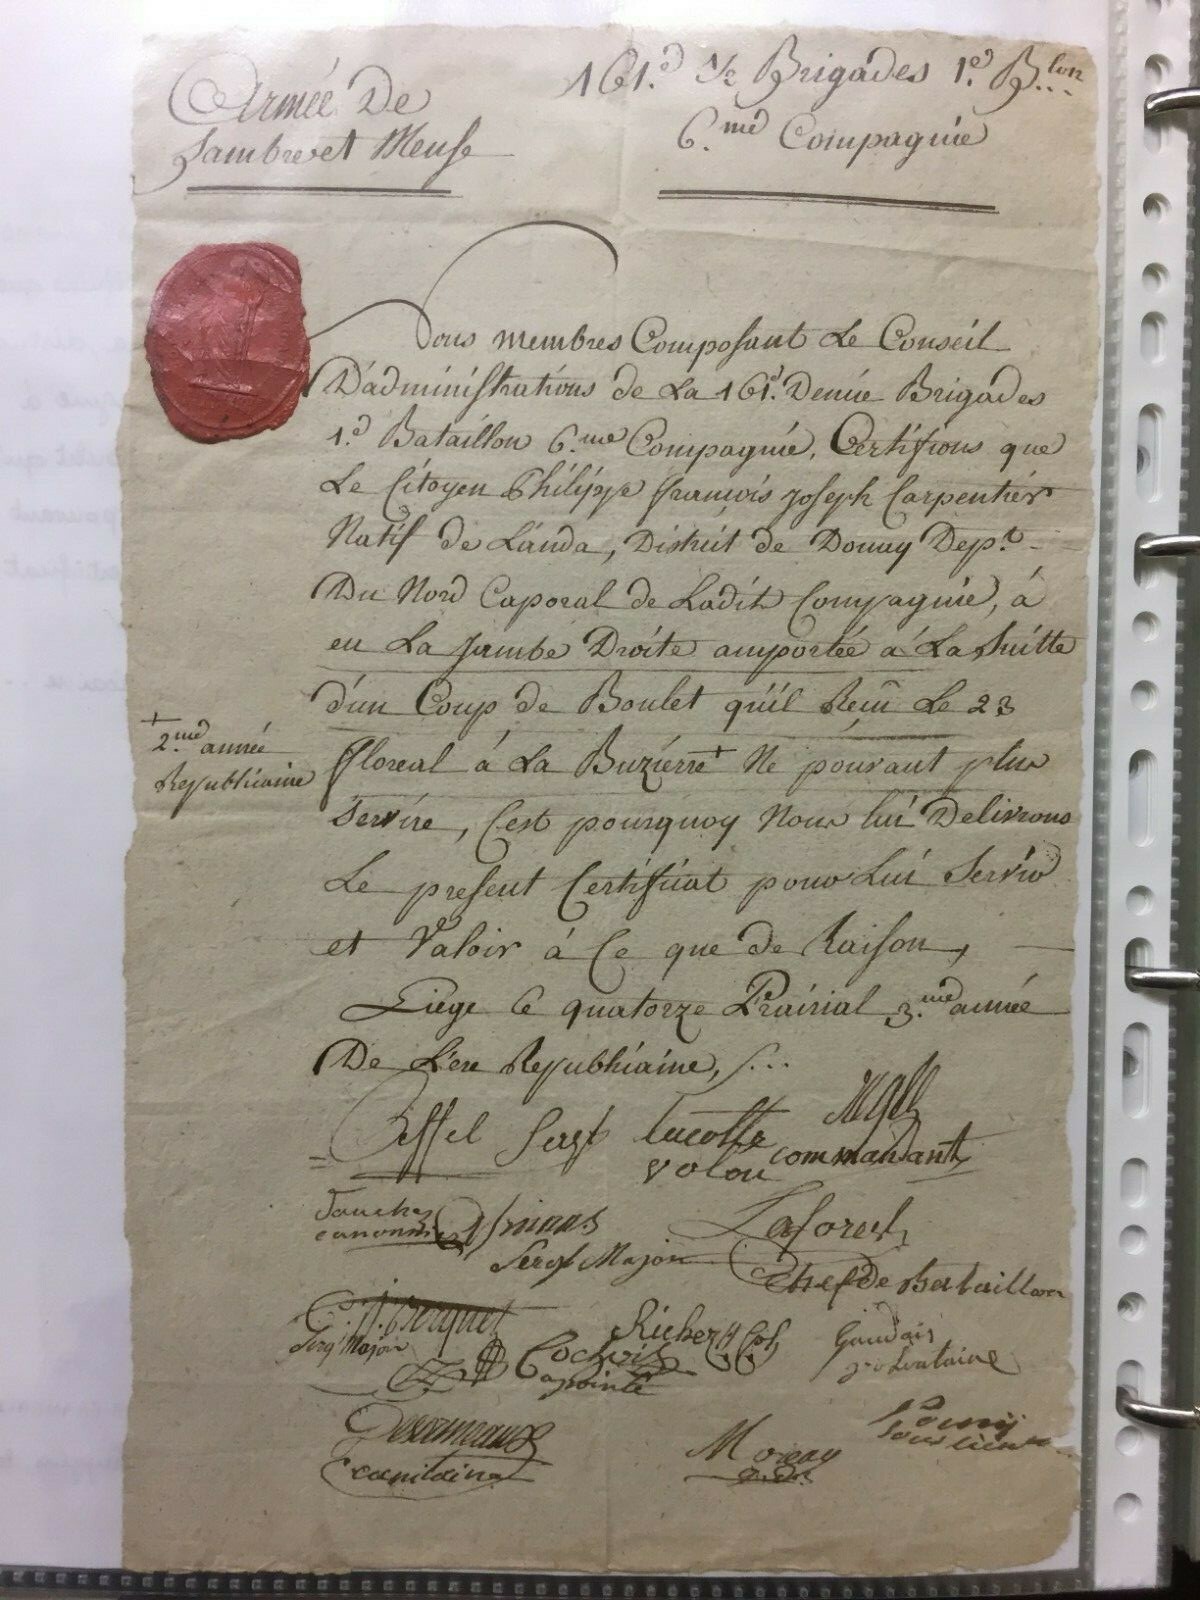 Armée De
Sambre et Meuse
161.e 1/2 Brigades 1.er B.lon
6.me Compagnie
Nous membres Composant Le Conseil
D'administrations de La 161.e Demie Brigades
1.er Bataillon 6.me Compagnie, Certifions que
Le Citoyen Philippe françois joseph Carpentier
Natif de Landa, District de Douay Dep.t
Du Nord Caporal de Ladite Compagnie, à
eu La jambe Droite amportée à La Suitte
d'un Coup de Boulet qu'il Reçu Le 23
floreal à La Buzierre + Ne pouvant plus
+ 2.me année
Republicaine
Servire, C'est pourquoy Nous lui Delivrons
Le present Certificat pour Lui Servir
et Valoir à Ce que de Raison,
Liège le quatorze Prairial 3.me année
De L'ere Republicaine, /...
Effel Serg.t Lucotte
volon commandant
canonnier
Serg.t Major Laforest
Chef de Bataillon
Berquet
Serg.t Major
Richez Cpl
volontaire
apointé
capitaine
Moreau
sous lieut